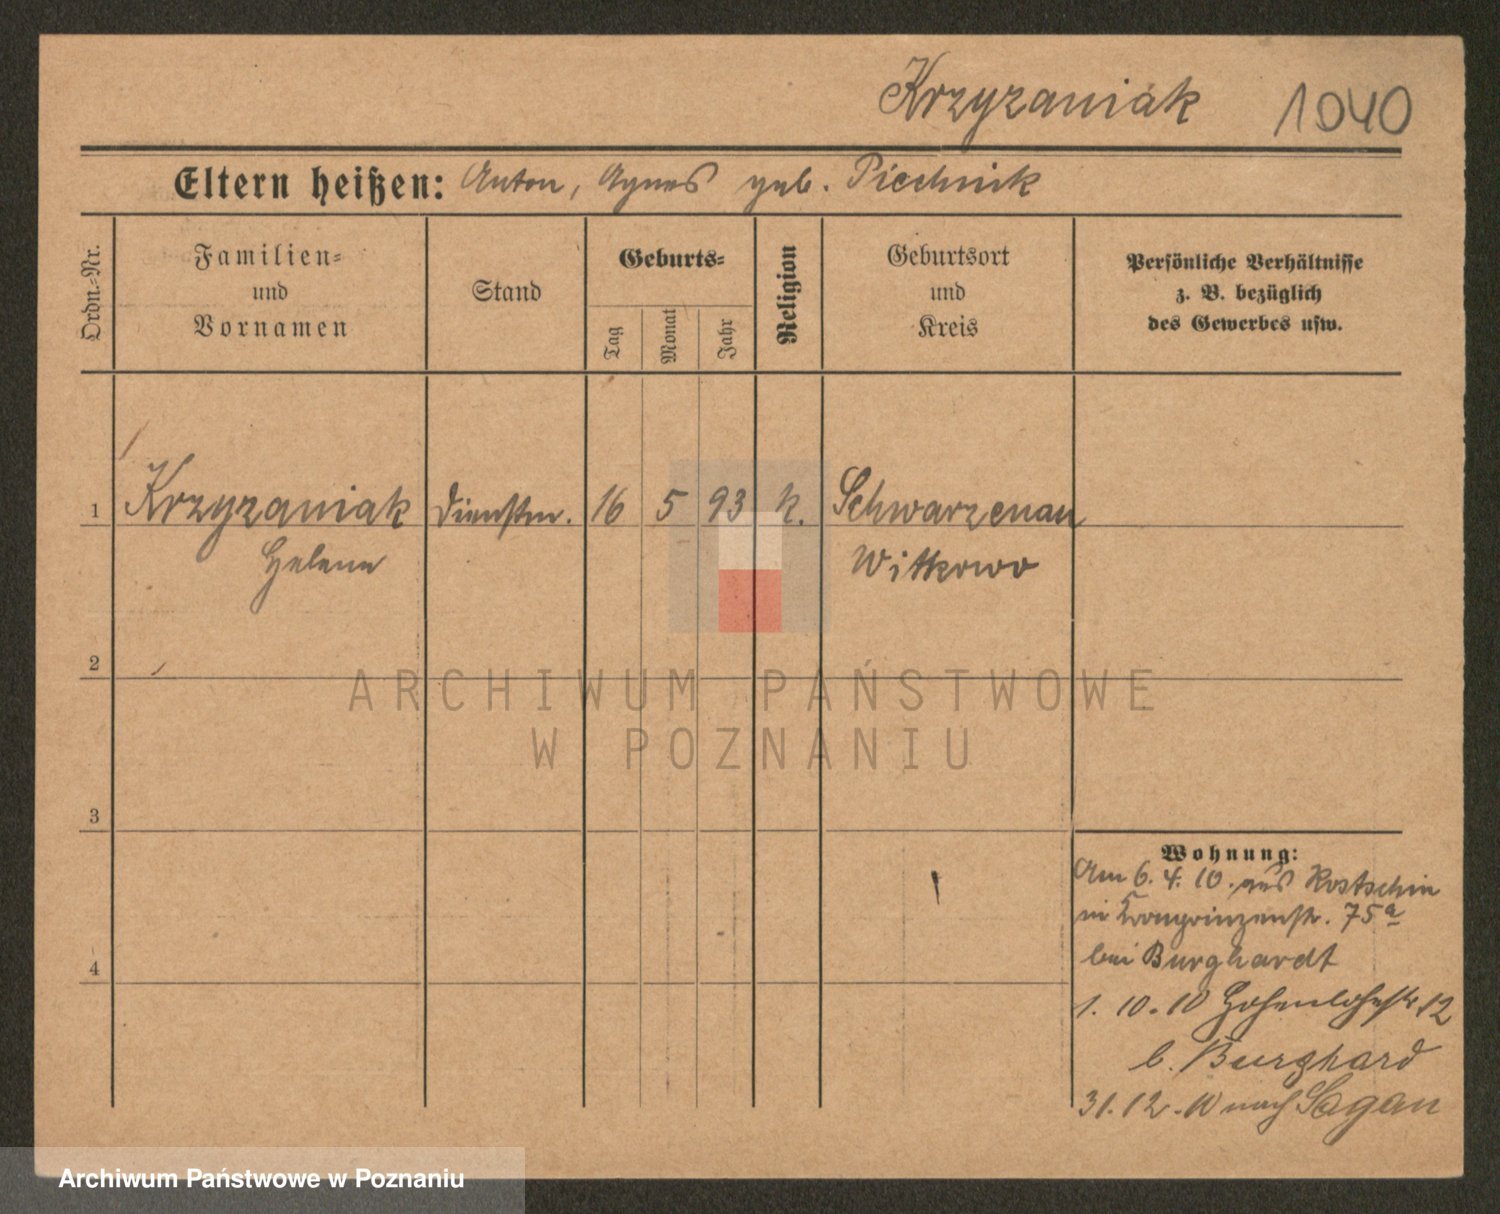 Krzyzaniak 1040
Eltern heißen: Anton, Agnes geb. Piechnik
Ordn.-Nr.
Familien-
und
Vornamen
Stand
Geburts-
Tag
Monat
Jahr
Religion
Geburtsort
und
Kreis
Persönliche Verhältnisse
z. B. bezüglich
des Gewerbes usw.
1 Krzyzaniak Dienstm. 16 5 93 k. Schwarzenau
Helene Witkowo
2
ARCHIWUM PAŃSTWOWE
W POZNANIU
3
Wohnung:
Am 6. 4. 10. aus Kostschin
in Kronprinzenstr. 75a
bei Burghardt
4
1. 10. 10 Hohenlohestr. 12
b. Burghard
31. 12. 10 nach Sagan
Archiwum Państwowe w Poznaniu